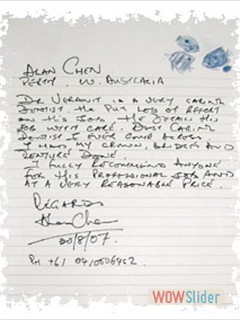 ALAN CHEN
PERTH, W. AUSTRALIA
DR VERANUT IS A VERY CARING
DENTIST HE PUT LOTS OF EFFORT
ON HIS JOBS. HE OBTAIN HIS
JOB WITH CARE. BEST CARING
DENTIST I EVER COME ACROSS
I HAD MY CROWN, BRIDGES AND
DENTURE DONE.
I FULLY RECOMMEND ANYONE
FOR THIS PROFESSIONAL AND
AT A VERY REASONABLE PRICE.
REGARDS
Alan Chen
30/8/07.
PH +61
WOWSlider